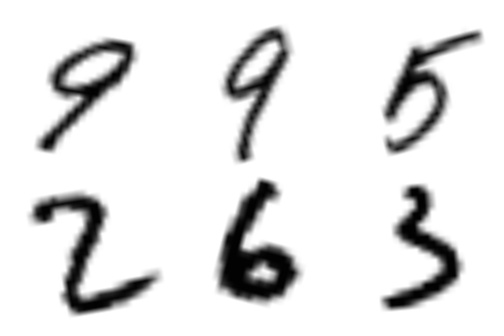 9 9 5
2 6 3